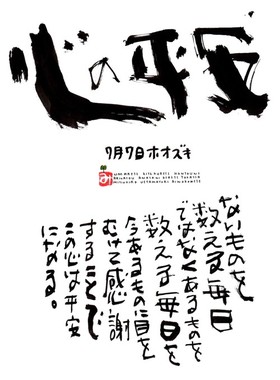 心の平安
7月7日ホオズキ
ないものを
数える毎日
ではなくあるものを
数える毎日を
今あるものに目を
むけて感謝
することで
この心は平安
になる。